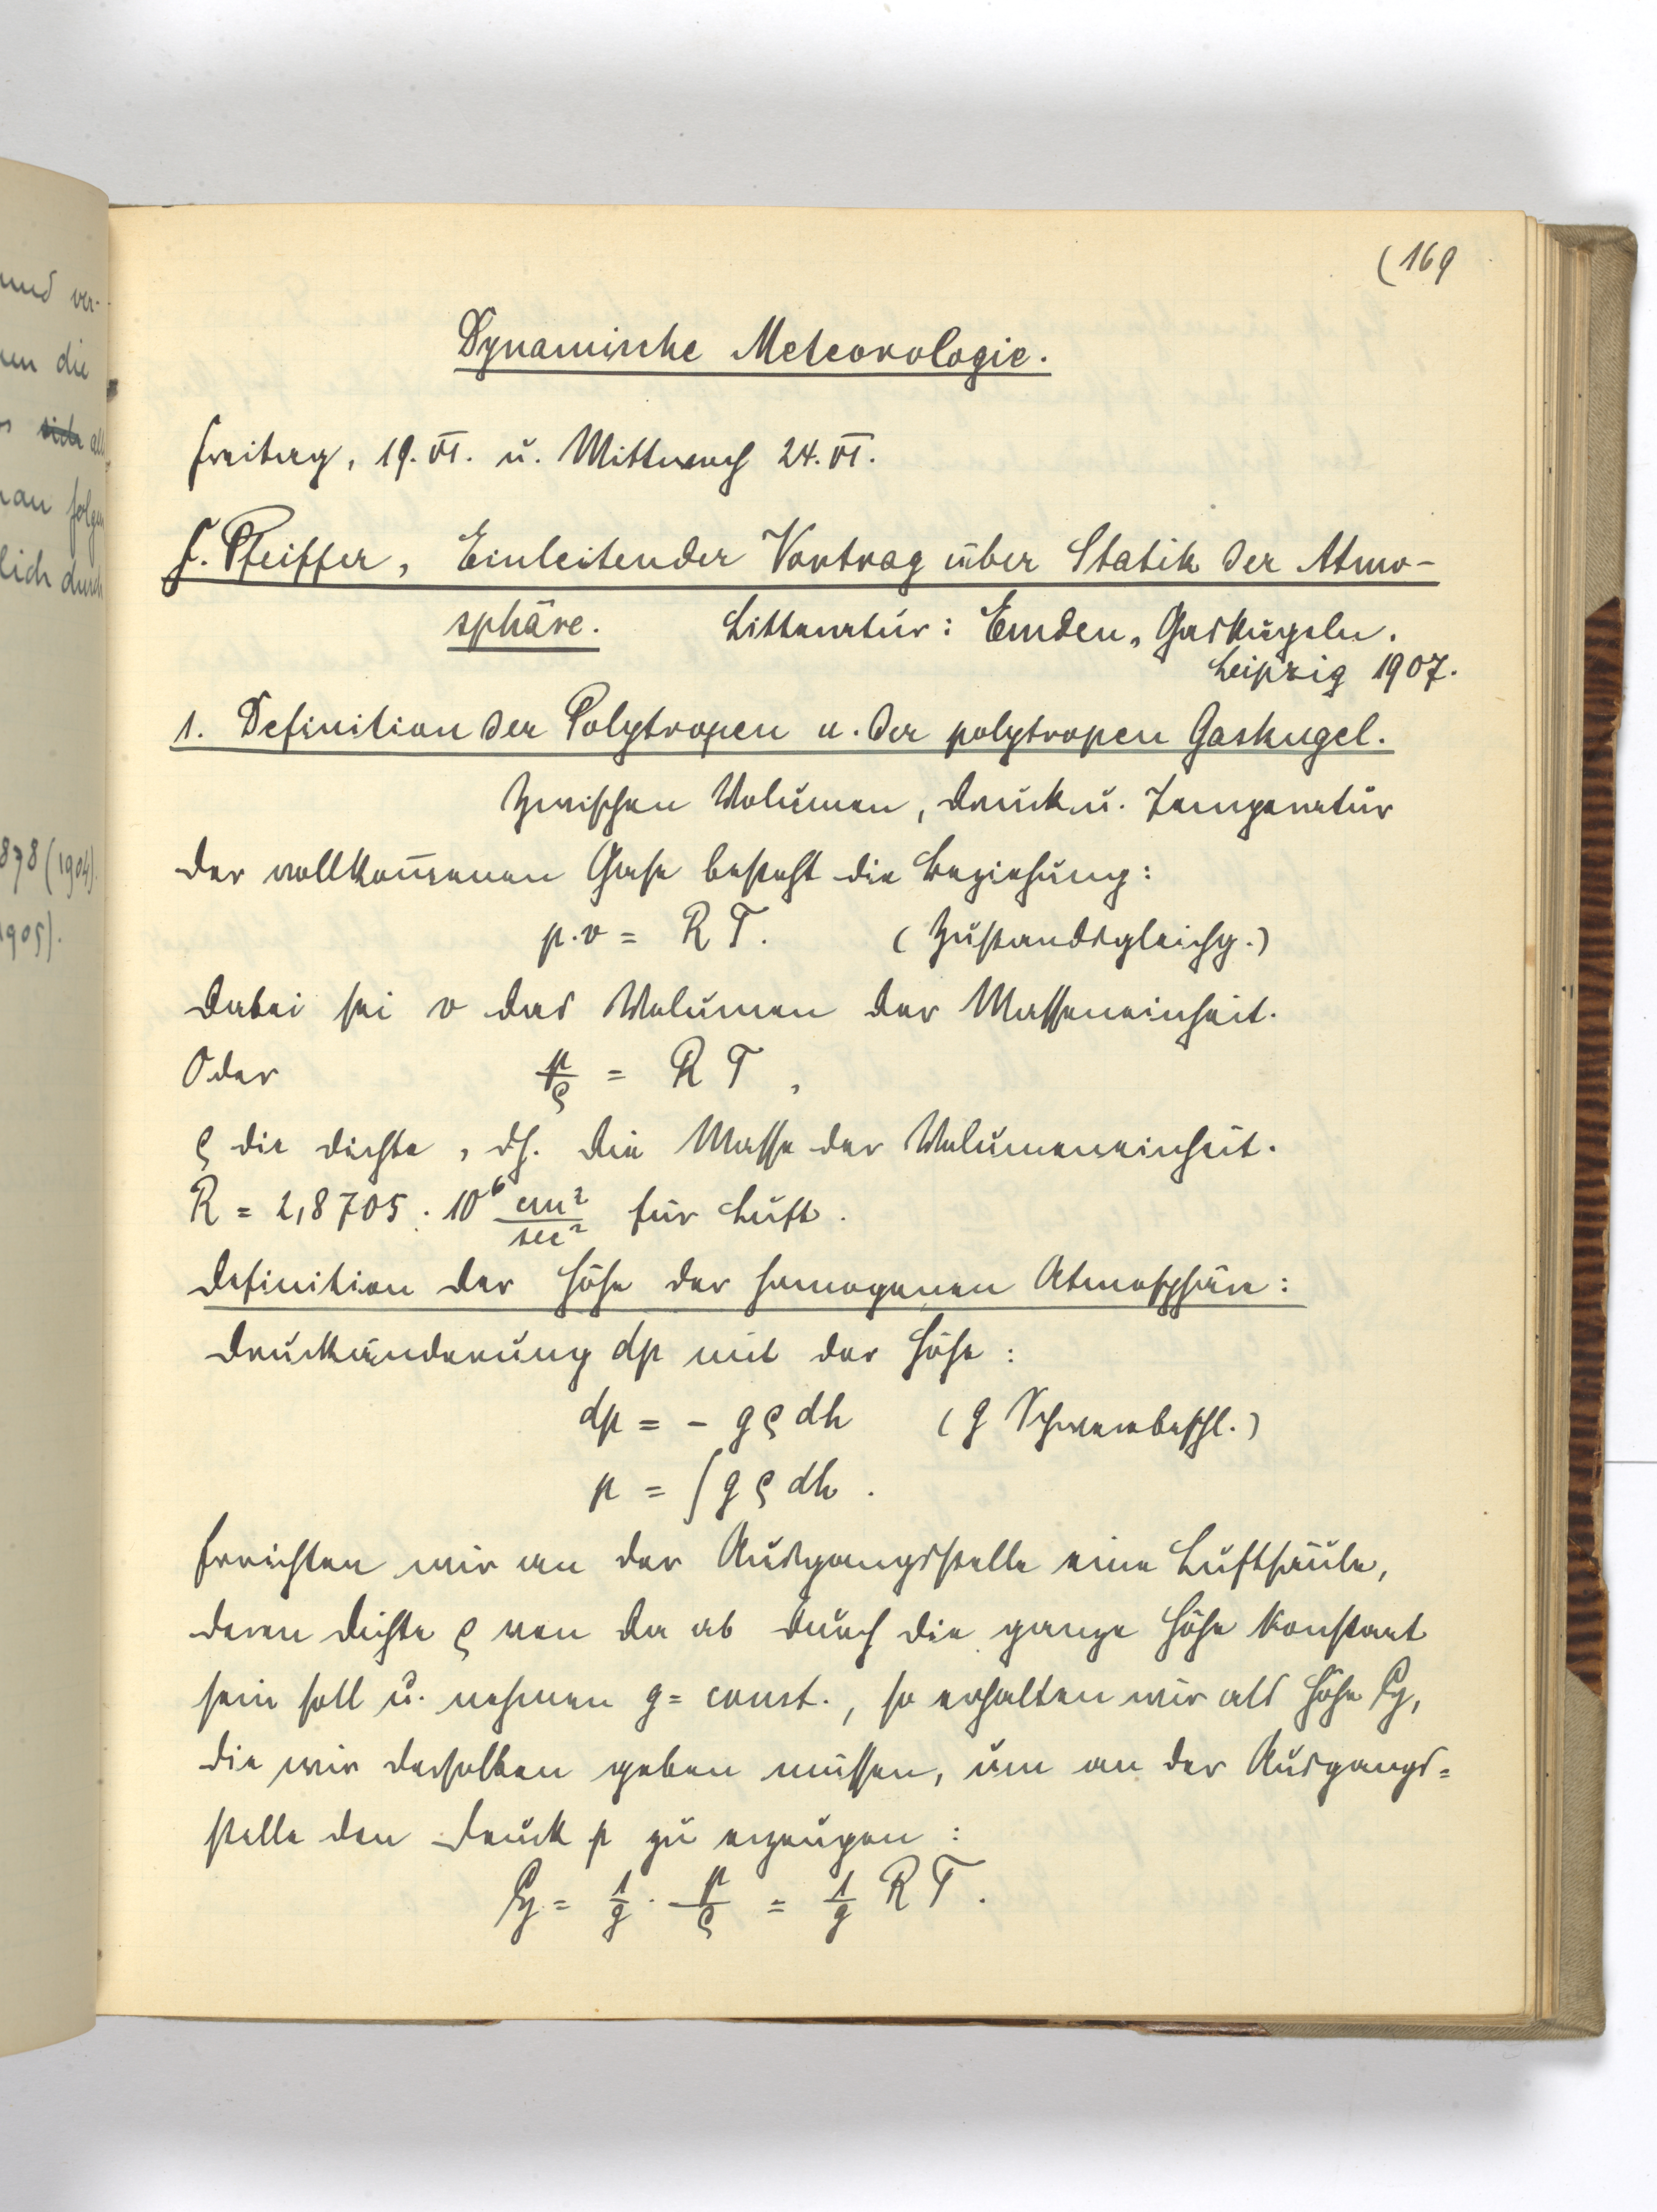 (169
Dynamische Meteorologie.
Freitag, 19. VI. u. Mittwoch 24. VI.
F. Pfeiffer, Einleitender Vortrag über Statik der Atmo-
sphäre. Litteratur: Emden, Gaskugeln.
Leipzig 1907.
1. Definition der Polytropen u. der polytropen Gaskugel.
Zwischen Volumen, Druck u. Temperatur
der vollkom̄enen Gase besteht die Beziehung:
p·v = RT. (Zustandsgleichg.)
Dabei sei v das Volumen der Masseneinheit.
Oder p/ρ = RT,
ρ die Dichte, dh. die Masse der Volumeneinheit.
R = 2,8705 · 10⁶ cm²/sec² für Luft.
Definition der Höhe der homogenen Atmosphäre:
Druckänderung dp mit der Höhe:
dp = - gρdh (g Schwerebeschl.)
p = ∫gρdh.
Errichten wir an der Ausgangsstelle eine Luftsäule,
deren Dichte ρ von da ab durch die ganze Höhe konstant
sein soll u. nehmen g = const., so erhalten wir als Höhe ℌ,
die wir derselben geben müssen, um an der Ausgangs=
stelle den Druck p zu erzeugen:
ℌ = 1/g · p/ρ = 1/g RT.
und ver-
die
sich all
man folgen
lich durch
878 (1904).
1905).